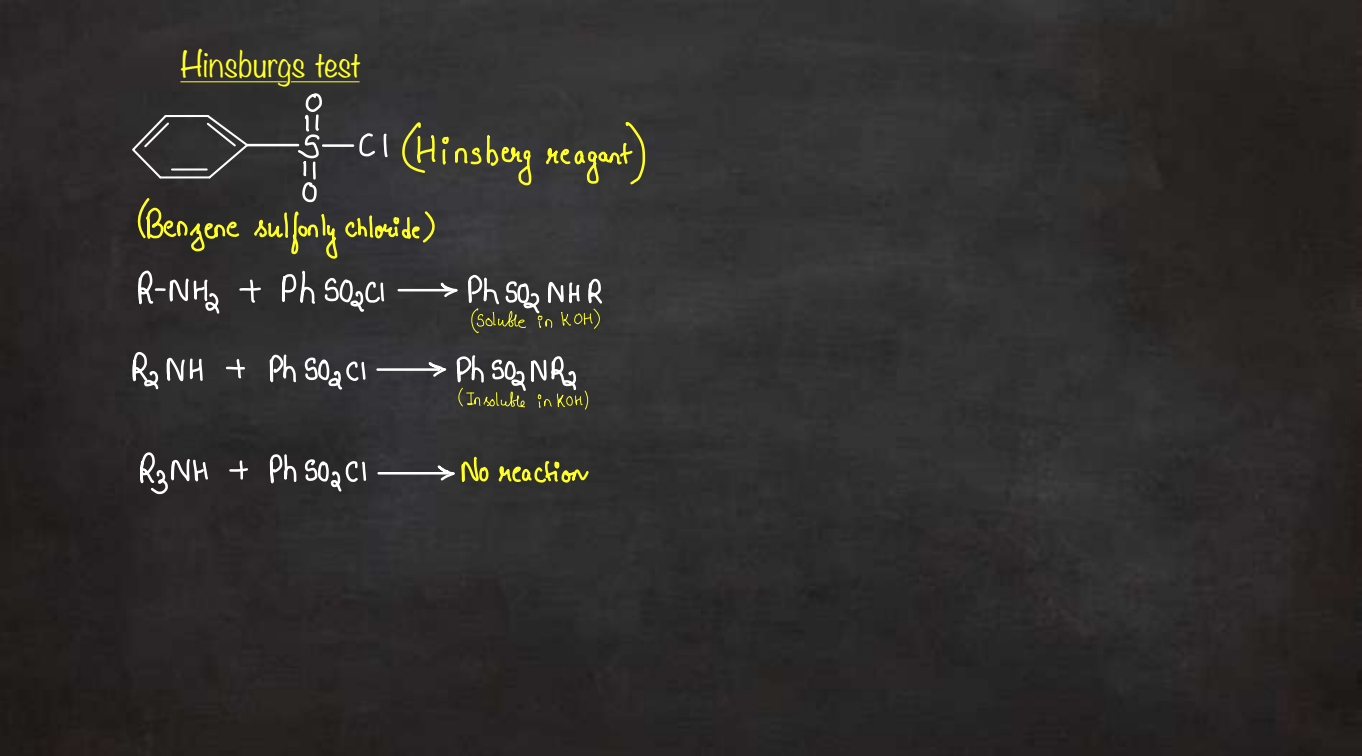 Hinsburgs test
O
S-Cl (Hinsberg reagant)
O
(Benzene sulfonly chloride)
R-NH₂ + Ph SO₂Cl ⟶ Ph SO₂ NH R
(Soluble in KOH)
R₂ NH + Ph SO₂Cl ⟶ Ph SO₂ NR₂
(Insoluble in KOH)
R₃NH + Ph SO₂Cl ⟶ No reaction